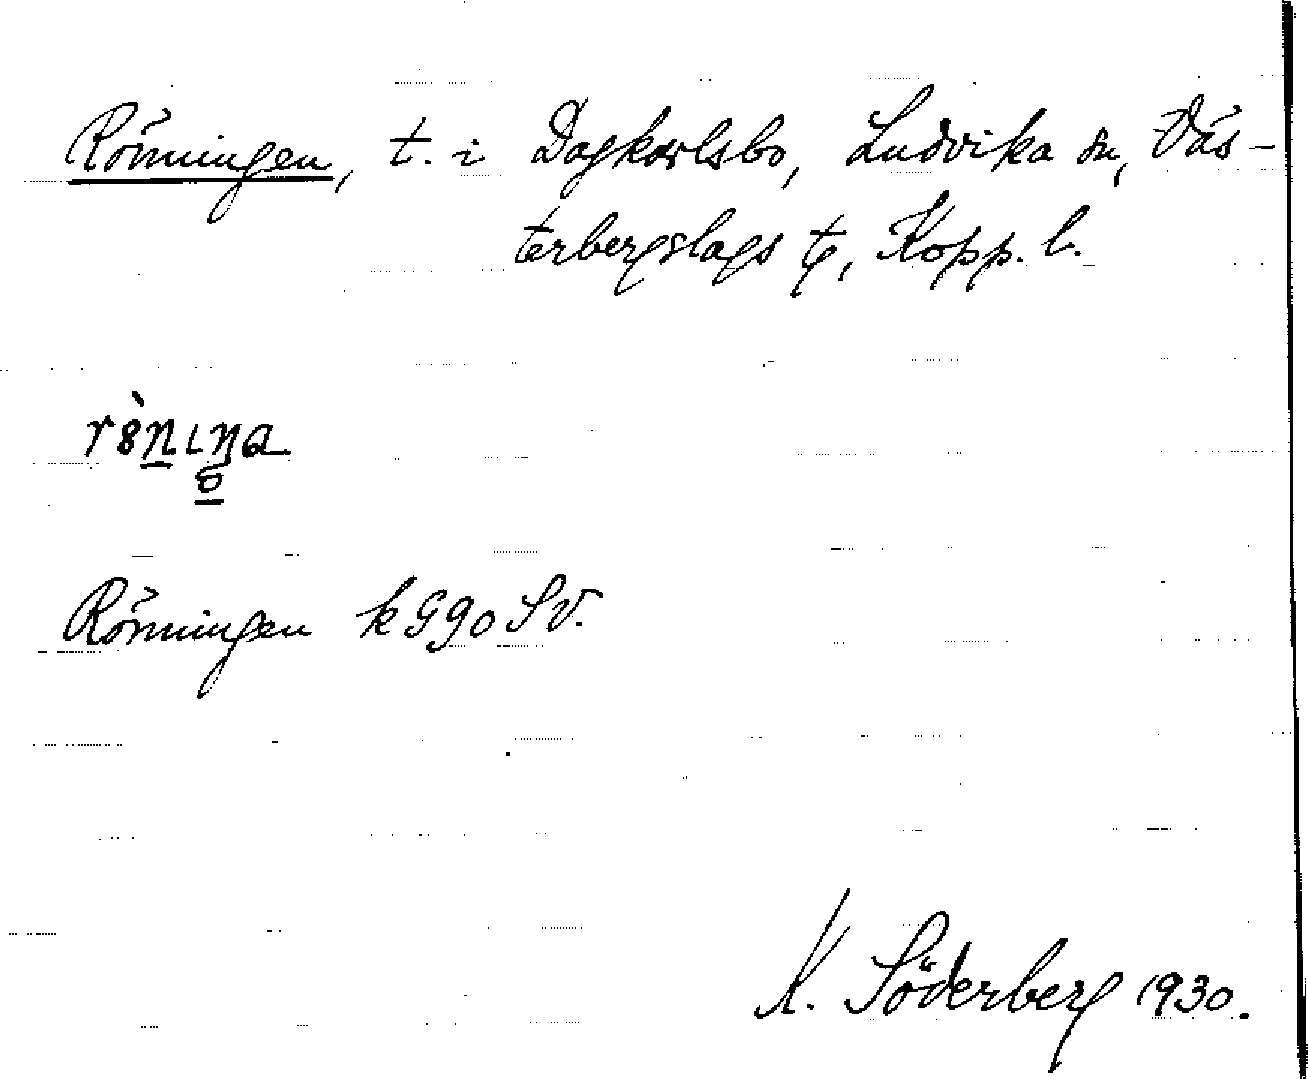 Rönningen, t. i Dagkarlsbo, Ludvika sn, Väs-
terbergslags tg, Kopp. l.
Rönningen k 590 SV.
K. Söderberg 1930.